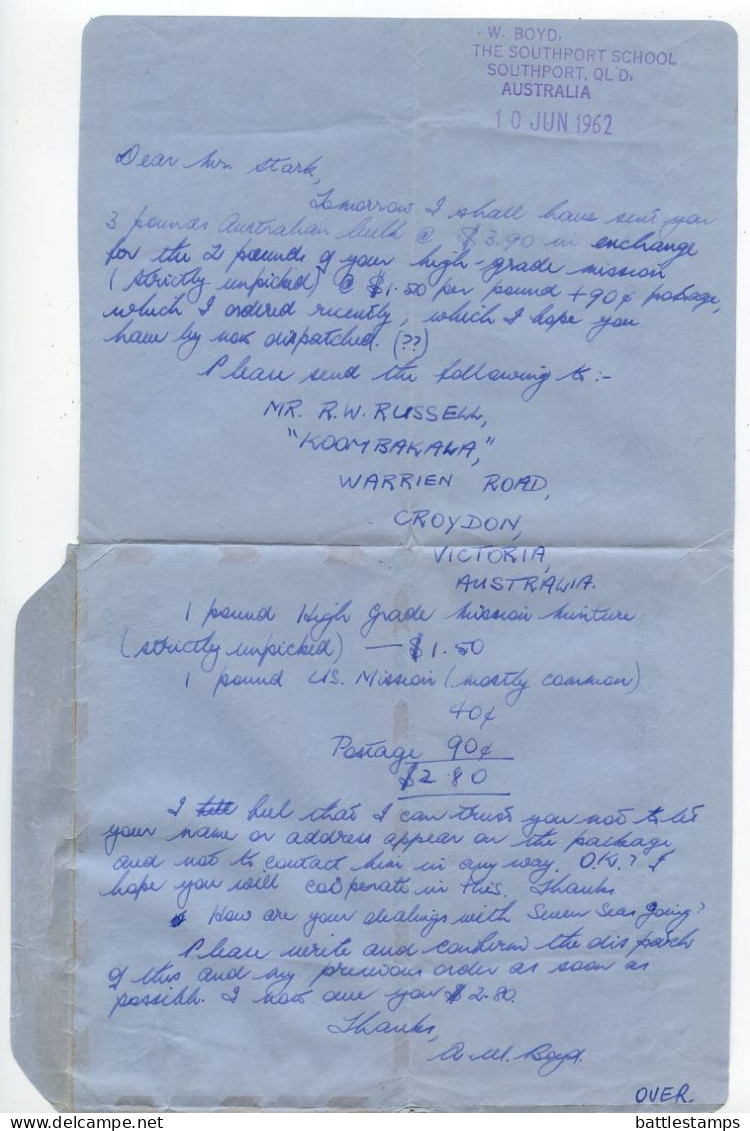 . W. BOYD,
THE SOUTHPORT SCHOOL
SOUTHPORT, QLD,
AUSTRALIA
10 JUN 1962
Dear Mr. Stark,
Tomorrow I shall have sent you
3 pounds Australian bulk @ $3.90 in exchange
for the 2 pounds of your high-grade mission
(strictly unpicked) @ $1.50 per pound + 90¢ postage,
which I ordered recently, which I hope you
have by now dispatched. (??)
Please send the following to:-
MR. R.W. RUSSELL,
"KOOMBAKALA,"
WARRIEN ROAD,
CROYDON,
VICTORIA,
AUSTRALIA.
1 pound High Grade Mission Mixture
(strictly unpicked) — $1.50
1 pound U.S. Mission (mostly common)
40¢
Postage 90¢
$2.80
I feel that I can trust you not to let
your name or address appear on the package
and not to contact him in any way. O.K.? I
hope you will coöperate in this. Thanks
How are your dealings with Seven Seas going?
Please write and confirm the dispatch
of this and my previous order as soon as
possible. I now owe you $2.80.
Thanks,
A. W. Boyd.
OVER.
battlestamps